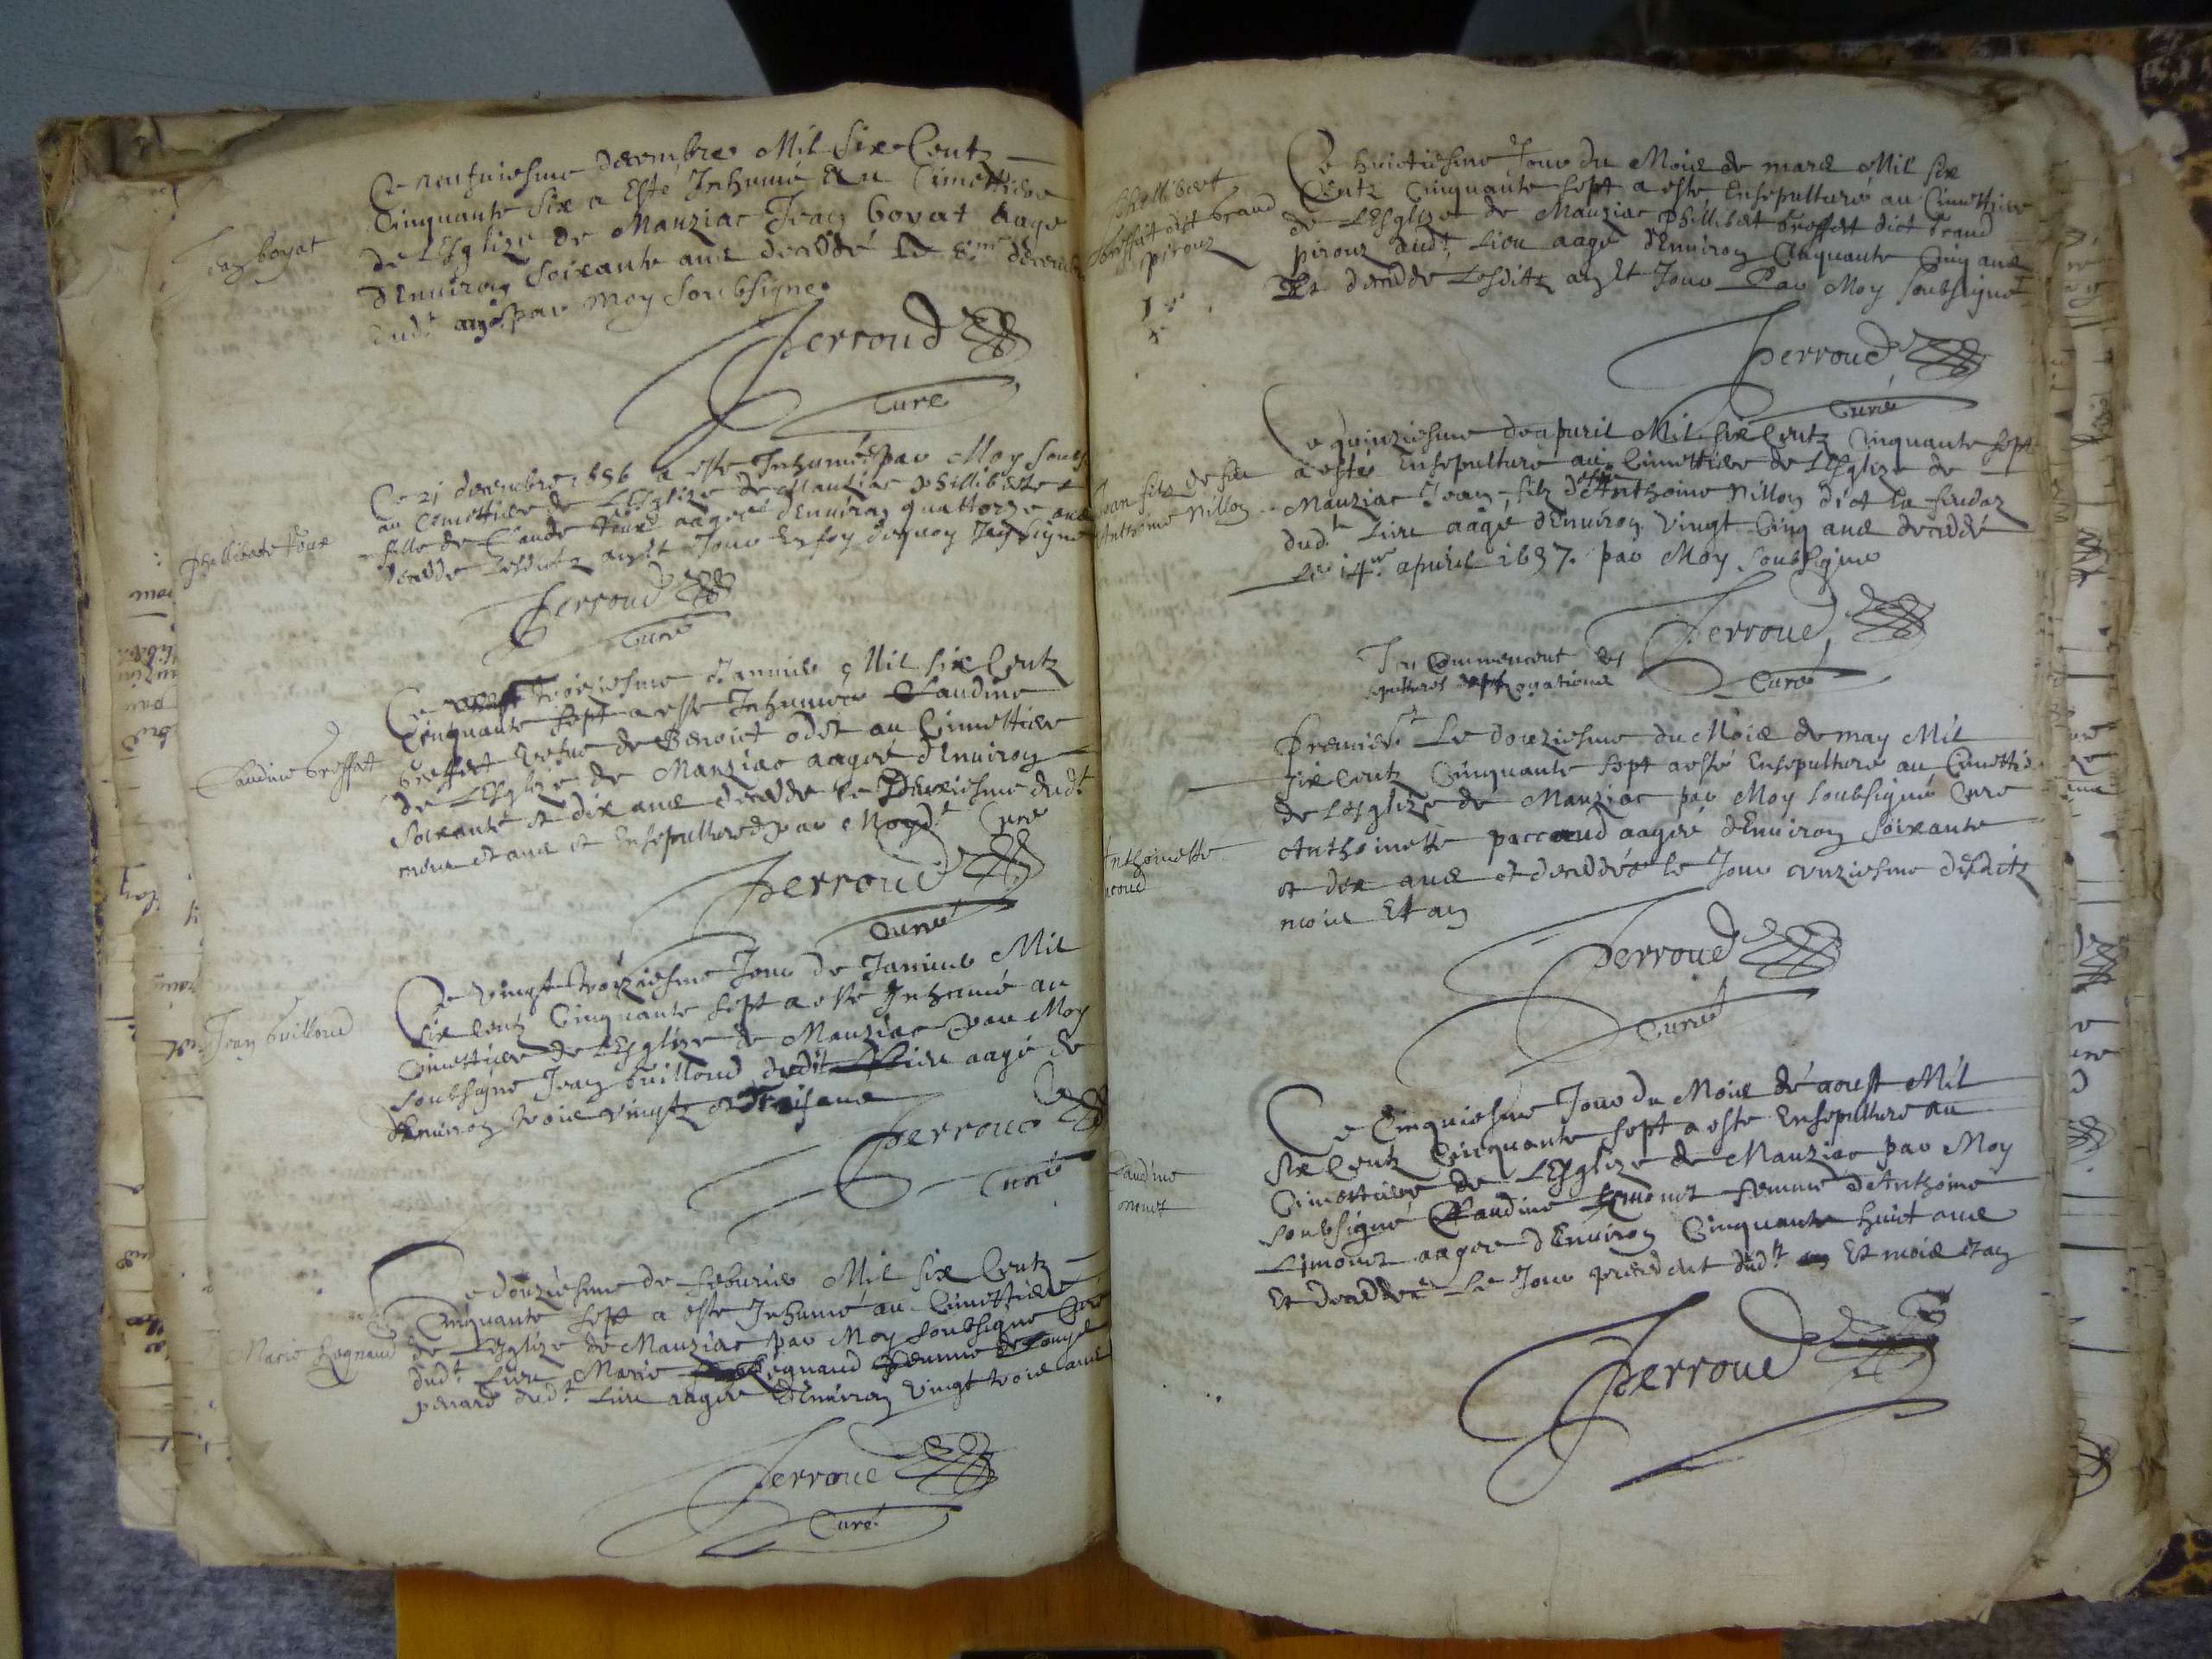 Jean boyat
Ce neufuiesme decembre Mil Six Centz
Cinquante Six a Esté Inhumé Au Cimettiere
de LEsglize de Manziac Jean bovat Aagé
dEnuiron Soixante ans decedde Le 8.me decembre
dud.t an par Moy Soubsigne
Perroud
Curé
Phillibate
Ce 21 decembre 1656 a este Inhumée par Moy Soubs
au Cimettiere de LEsglize de Manziac phillibate
fille de Claude aagée dEnuiron quattorze ans
decedde Lesditz an et Jour En foy dequoy Jay Signé
Perroud
Curé
Claudine breffat
Ce troiziesme Januier Mil Six Centz
Cinquante Sept a este Inhumée Claudine
breffat vefue de Benoict odet au Cimettiere
de LEsglize de Manziac aagée dEnuiron
Soixante et dix ans decedde le Deuxiesme dud.t
mois et an et Ensepulturée par Moyd.t Curé
Perroud
Curé
Jean builloud
Ce vingt troiziesme Jour de Januier Mil
Six Centz Cinquante Sept a este Inhumé au
Cimettiere de LEsglize de Manziac par Moy
Soubsigne Jean builloud dudit Lieu aagé de
dEnuiron trois vingtz et Trois ans
Perroud
Curé
Marie Regnaud
Ce douziesme de feburier Mil Six Centz
Cinquante Sept a este Inhumé au Cimettiere
de LEsglize de Manziac par Moy Soubsigne Curé
dud.t Lieu Marie Regnaud femme de
dud.t Lieu aagée dEnuiron vingt trois ans
Perroud
Curé
Phillibert
breffat dict braud
pirouz
Ce huictiesme Jour du Mois de mars Mil Six
Centz Cinquante Sept a esté Ensepulturé au Cimettiere
de LEsglize de Manziac Phillibert breffat dict braud
pirouz dud.t Lieu aagé dEnuiron Cinquante Cinq ans
Et decedde Lesditz an et Jour Par Moy Soubsigné
Perroud
Curé
Jean filz de feu
Anthoine Nillon
Ce quinziesme de apuril Mil Six Centz Cinquante Sept
a esté Ensepulturé au Cimettiere de LEsglize de
Manziac Jean filz de feu Anthoine Nillon dict La
dud.t Lieu aagé dEnuiron Vingt Cinq ans deceddé
Le 14.e apuril 1657. par Moy Soubsigne
Perroud
Curé
Icy Commencent Les
Premier.t Le douziesme du Mois de may Mil
Six Centz Cinquante Sept a esté Ensepulturé au Cimettie
de LEsglize de Manziac par Moy Soubsigné Curé
Anthoinette
Anthoinette paccoud aagée dEnuiron Soixante
et dix ans et deceddée le Jour onziesme desditz
mois Et an
Perroud
Curé
Claudine
Ce Cinquiesme Jour du Mois de aoust Mil
Six Centz Cinquante Sept a este Ensepulture au
Cimettiere de LEsglize de Manziac par Moy
Soubsigné Claudine femme de Anthoine
Limonet aagee dEnuiron Cinquante huict ans
Et deceddée Le Jour precedent dud.t Et mois et an
Perroud